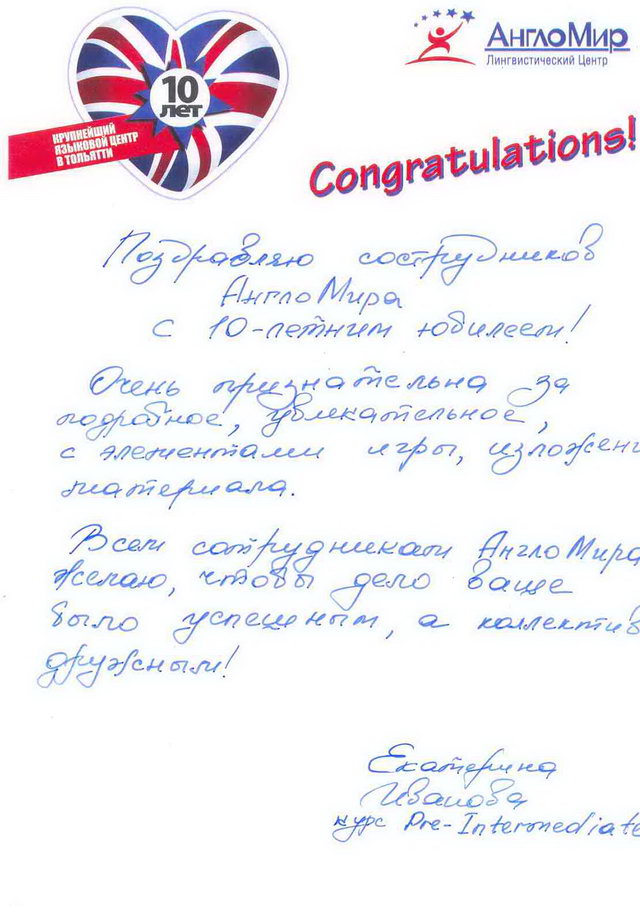 АнглоМир
Лингвистический Центр
10
лет
КРУПНЕЙШИЙ
ЯЗЫКОВОЙ ЦЕНТР
В ТОЛЬЯТТИ
Congratulations!
Поздравляю сотрудников
АнглоМира
с 10-летним юбилеем!
Очень признательна за
подробное, увлекательное,
с элементами игры, изложени
материала.
Всем сотрудникам АнглоМира
желаю, чтобы дело ваше
было успешным, а коллектив
дружным!
Екатерина
Иванова
курс Pre-Intermediate